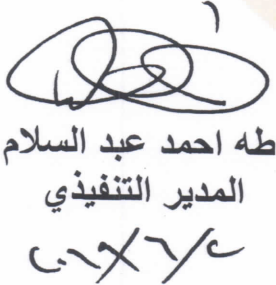 طه احمد عبد السلام
المدير التنفيذي
٢٠١٩/٦/٢